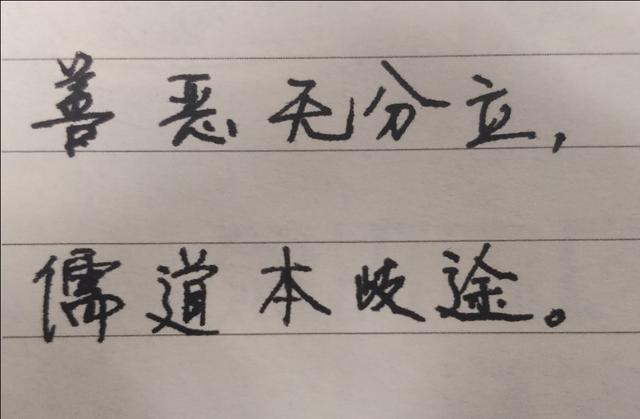 善恶无分立，
儒道本歧途。